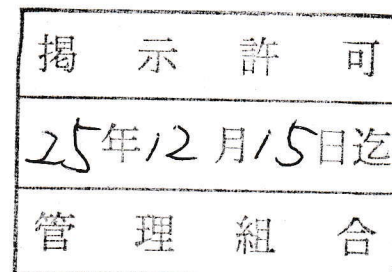 掲示許可
25年12月15日迄
管理組合